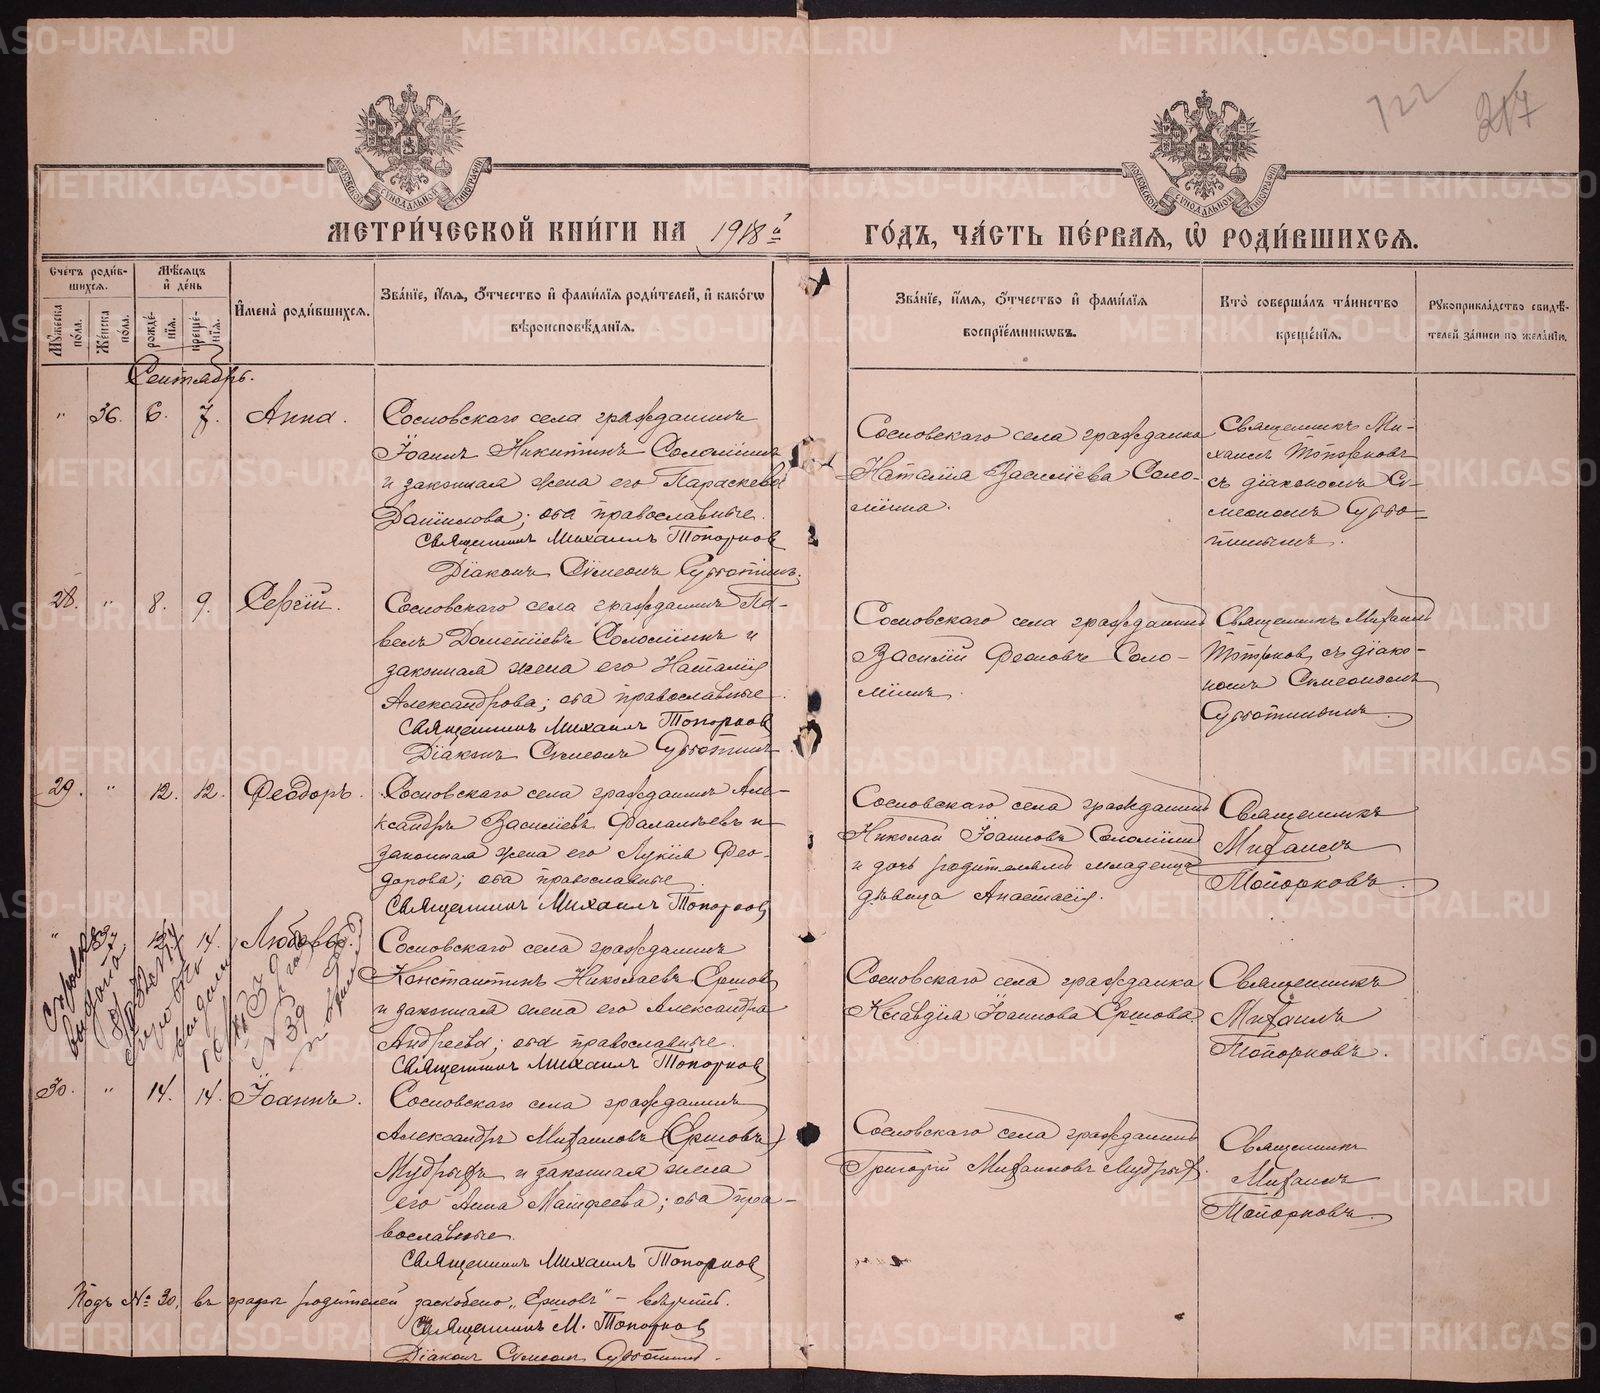 METRIKI.GASO-URAL.RU
122
217
МОСКОВСКОЙ СѴНОДАЛЬНОЙ ТИПОГРАФІИ
МОСКОВСКОЙ СѴНОДАЛЬНОЙ ТИПОГРАФІИ
МЕТРИ́ЧЕСКОЙ КНИ́ГИ НА 1918й ГО́ДЪ, ЧА́СТЬ ПЕ́РВАЯ, Ѡ РОДИ́ВШИХСЯ.
Сче́тъ роди́в-
шихся.
Му́жеска по́ла.
Же́нска по́ла.
Мѣ́сяцъ
и де́нь
рожде́нія.
креще́нія.
И҆мена̀ роди́вшихся.
Зва́ніе, и҆́мя, ѻ҆́тчество и҆ фами́лія роди́телей, и҆ како́гѡ
вѣроисповѣ́данія.
Зва́ніе, и҆́мя, ѻ҆́тчество и҆ фами́лія
воспріе́мникѡвъ.
Кто̀ соверша́лъ та́инство
креще́нія.
Рукоприкла́дство свидѣ́-
телей за́писи по жела́нію.
Сентябрь.
" 36. 6. 7. Анна.
Сосновскаго села гражданинъ
Іоаннъ Никитинъ Соломинъ
и законная жена его Параскева
Даніилова; оба православные.
Священникъ Михаилъ Топорков
Діаконъ Сѵмеонъ Субботинъ.
Сосновскаго села гражданка
Наталія Василіева Соло-
мина.
Священникъ Ми-
хаилъ Топорковъ
съ діакономъ Си-
меономъ Суббо-
тинымъ.
28. " 8. 9. Сергій.
Сосновскаго села гражданинъ Па-
велъ Дометіевъ Соломинъ и
законная жена его Наталія
Александрова; оба православные.
Священникъ Михаилъ Топорков
Діаконъ Сѵмеонъ Субботинъ
Сосновскаго села гражданинъ
Василій Соло-
минъ.
Священникъ Михаилъ
Топорков съ діако-
номъ Сѵмеономъ
Субботинымъ.
29. " 12. 12. Феодоръ.
Сосновскаго села гражданинъ Але-
ксандръ Васильевъ и
законная жена его Лукія Фео-
дорова; оба православные
Священникъ Михаилъ Топорков
Сосновскаго села гражданинъ
Николай Іоанновъ Соломинъ
и дочь родителей младенца
дѣвица Анастасія.
Священникъ
Михаилъ
Топорковъ.
" 37 14. Любовь.
Сосновскаго села гражданинъ
Константинъ Николаевъ Ершовъ
и законная жена его Александра
Андреева; оба православные.
Священникъ Михаилъ Топорков
Сосновскаго села гражданка
Клавдія Іоаннова Ершова.
Священникъ
Михаилъ
Топорковъ.
выдана
№ 39
30. " 14. 14. Іоаннъ.
Сосновскаго села гражданинъ
Александръ Михаиловъ (Ершовъ)
Мудрыхъ и законная жена
его Анна Матфеева; оба пра-
вославные.
Священникъ Михаилъ Топорков
Сосновскаго села гражданинъ
Григорій Михаиловъ Мудрыхъ.
Священникъ
Михаилъ
Топорковъ.
Подъ № 30, въ графѣ родителей заскоблено „Ершовъ" – вѣрить.
Священникъ М. Топорков
Діаконъ Сѵмеонъ Субботинъ.